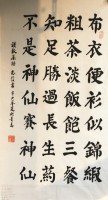 布衣便衫似錦緞
粗茶淡飯飽三餐
知足勝過長生药
不是神仙賽神仙